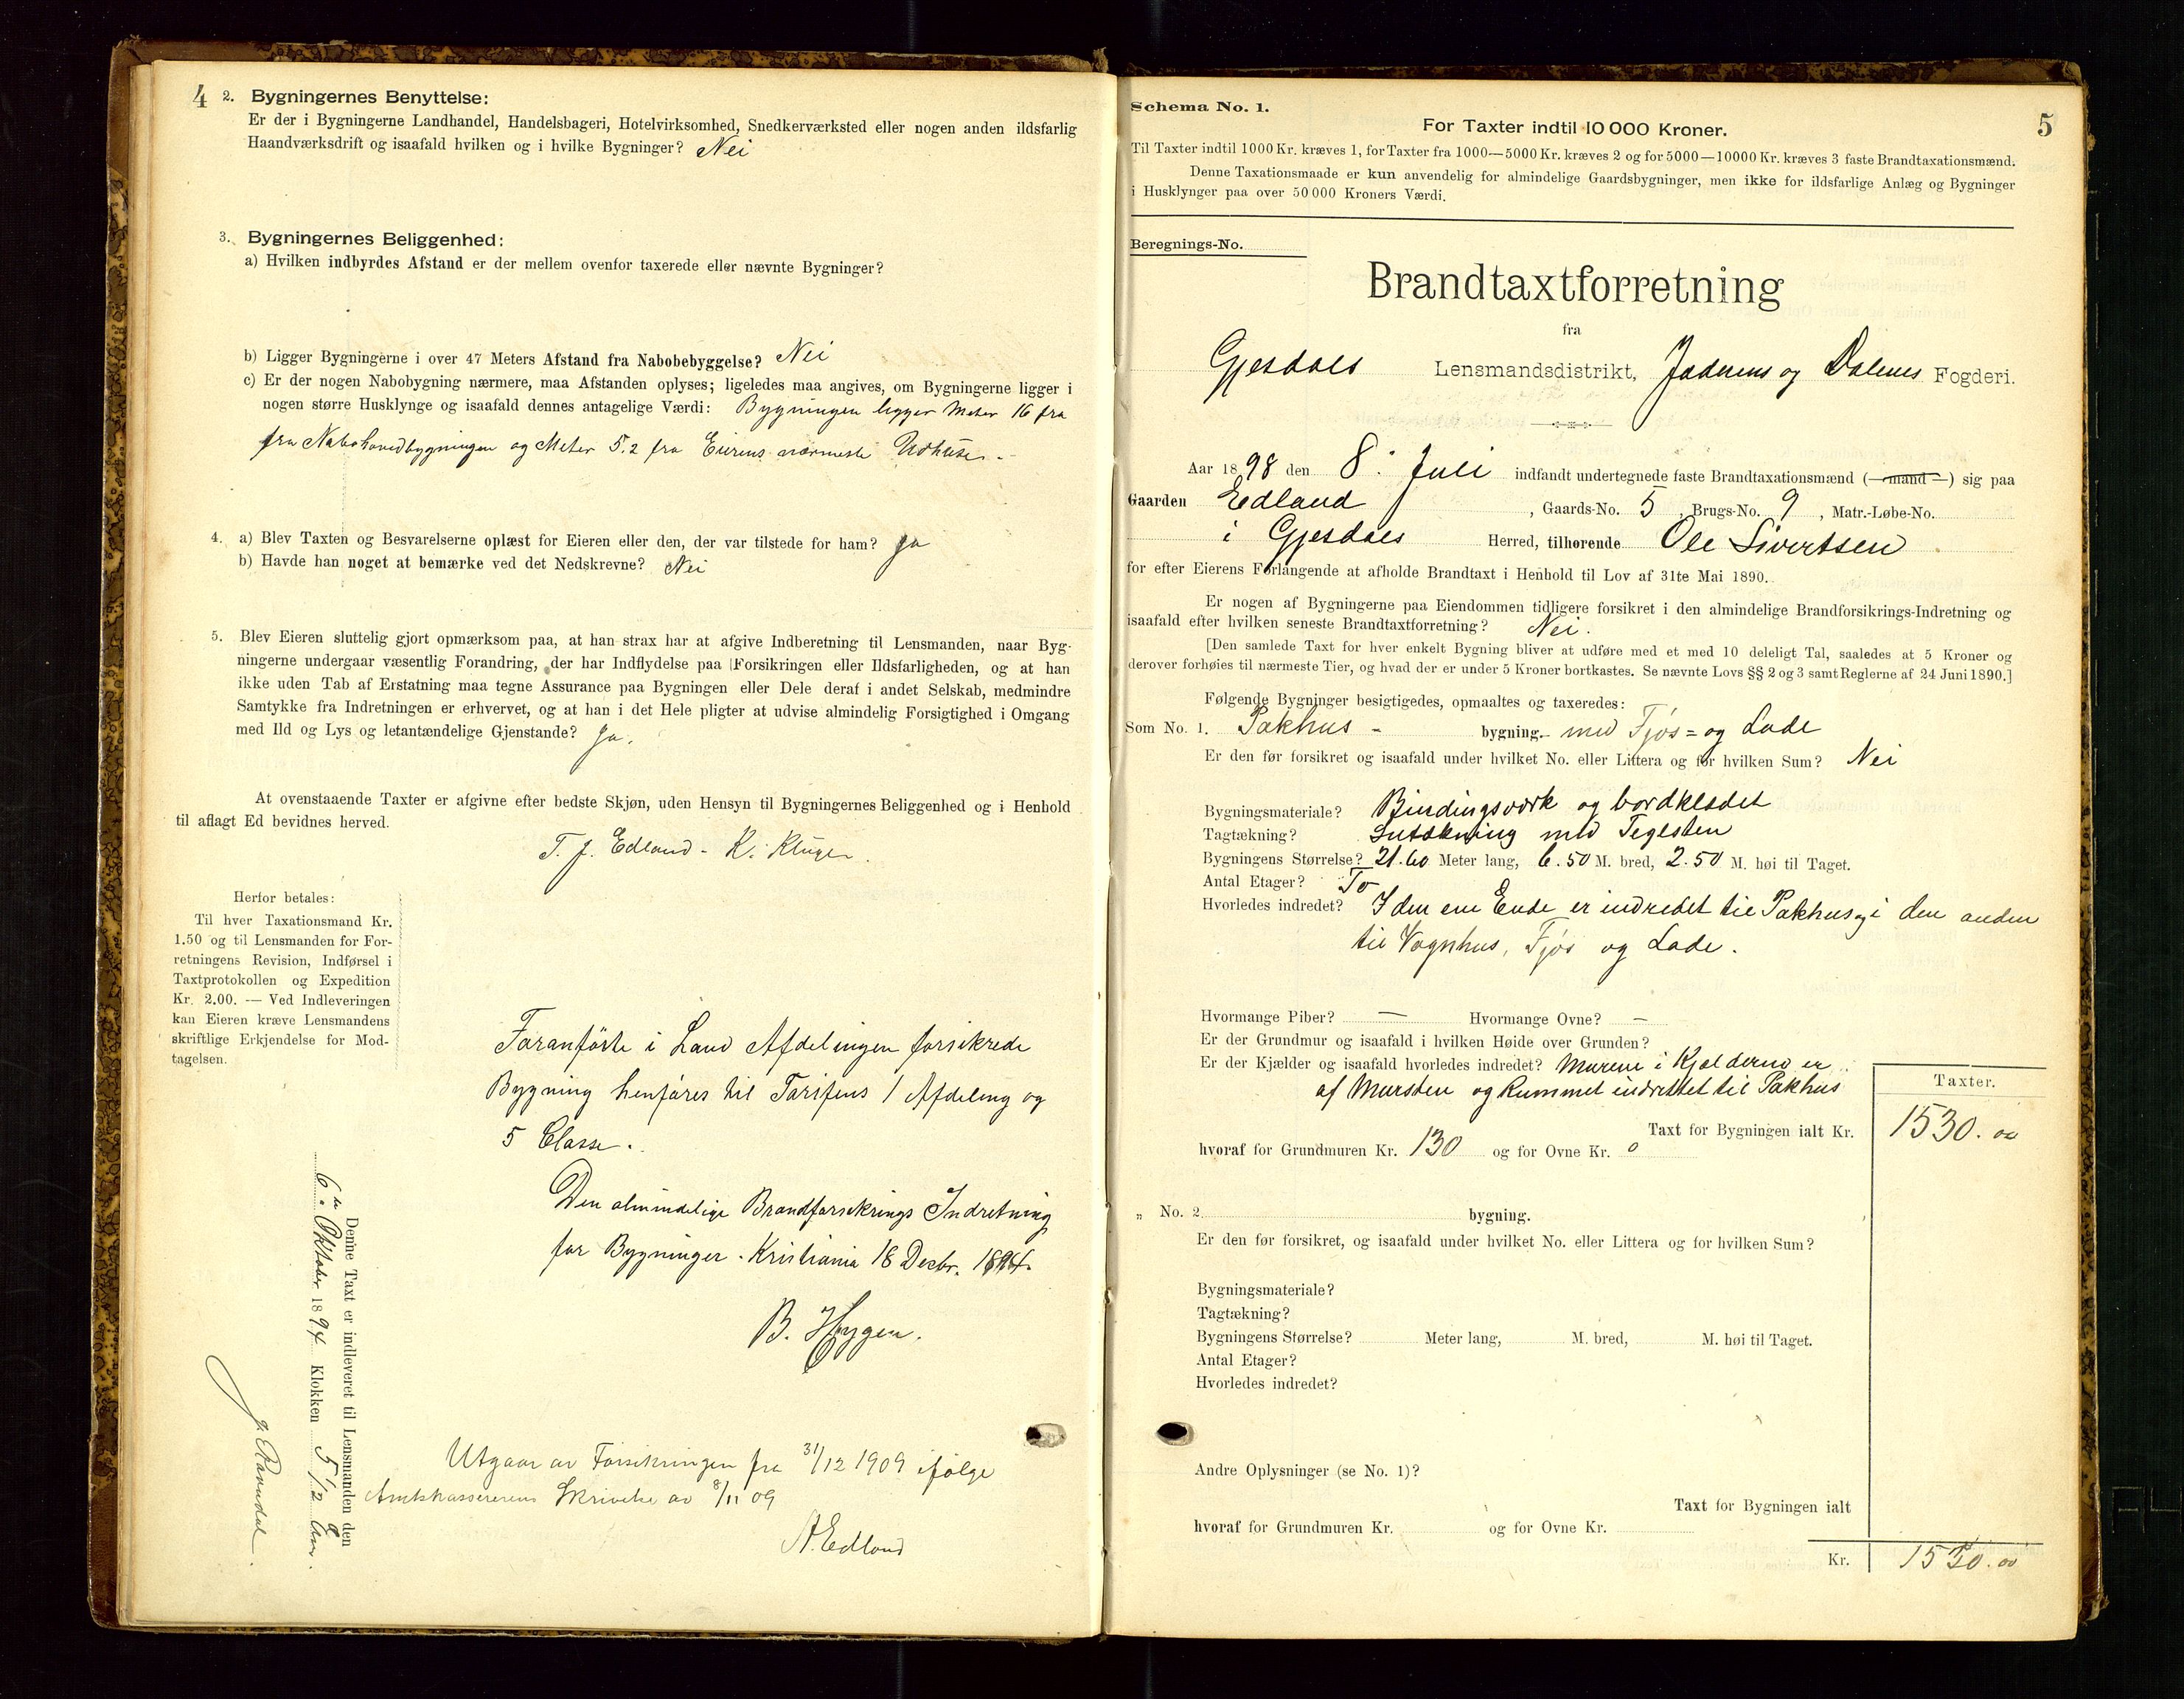 4
2. Bygningernes Benyttelse:
Er der i Bygningerne Landhandel, Handelsbageri, Hotelvirksomhed, Snedkerværksted eller nogen anden ildsfarlig
Haandværksdrift og isaafald hvilken og i hvilke Bygninger? Nei
3. Bygningernes Beliggenhed:
a) Hvilken indbyrdes Afstand er der mellem ovenfor taxerede eller nævnte Bygninger?
b) Ligger Bygningerne i over 47 Meters Afstand fra Nabobebyggelse? Nei
c) Er der nogen Nabobygning nærmere, maa Afstanden oplyses; ligeledes maa angives, om Bygningerne ligger i
nogen større Husklynge og isaafald dennes antagelige Værdi: Bygningen ligger Meter 16 fra
fra Nabohovedbygningen og Meter 5.2 fra Eierens nærmeste Udhuse. -
4. a) Blev Taxten og Besvarelserne oplæst for Eieren eller den, der var tilstede for ham? Ja
b) Havde han noget at bemærke ved det Nedskrevne? Nei
5. Blev Eieren sluttelig gjort opmærksom paa, at han strax har at afgive Indberetning til Lensmanden, naar Byg-
ningerne undergaar væsentlig Forandring, der har Indflydelse paa Forsikringen eller Ildsfarligheden, og at han
ikke uden Tab af Erstatning maa tegne Assurance paa Bygningen eller Dele deraf i andet Selskab, medmindre
Samtykke fra Indretningen er erhvervet, og at han i det Hele pligter at udvise almindelig Forsigtighed i Omgang
med Ild og Lys og letantændelige Gjenstande? Ja.
At ovenstaaende Taxter er afgivne efter bedste Skjøn, uden Hensyn til Bygningernes Beliggenhed og i Henhold
til aflagt Ed bevidnes herved.
T. J. Edland - K. Kluge.
Herfor betales:
Til hver Taxationsmand Kr.
1.50 og til Lensmanden for For-
retningens Revision, Indførsel i
Taxtprotokollen og Expedition
Kr. 2.00. — Ved Indleveringen
kan Eieren kræve Lensmandens
skriftlige Erkjendelse for Mod-
tagelsen.
Foranførte i Land Afdelingen forsikrede
Bygning henføres til Tarifens 1 Afdeling og
5 Classe.
Den almindelige Brandforsikrings Indretning
for Bygninger. Kristiania 18 Decbr. 1894.
B. Hygen.
Denne Taxt er indleveret til Lensmanden den
6te Oktober 1894 Klokken 5 1/2 Em.
Utgaar av Forsikringen fra 31/12 1909 ifølge
Amtskassererens Skrivelse av 8/11 09
A. Edland
Schema No. 1.
5
For Taxter indtil 10 000 Kroner.
Til Taxter indtil 1000 Kr. kræves 1, for Taxter fra 1000—5000 Kr. kræves 2 og for 5000—10000 Kr. kræves 3 faste Brandtaxationsmænd.
Denne Taxationsmaade er kun anvendelig for almindelige Gaardsbygninger, men ikke for ildsfarlige Anlæg og Bygninger
i Husklynger paa over 50 000 Kroners Værdi.
Beregnings-No.
Brandtaxtforretning
fra
Gjesdals Lensmandsdistrikt, Jæderens og Dalenes Fogderi.
Aar 1898 den 8. Juli indfandt undertegnede faste Brandtaxationsmænd (—mand—) sig paa
Gaarden Edland, Gaards-No. 5, Brugs-No. 9, Matr.-Løbe-No.
i Gjesdals Herred, tilhørende Ole Sivertsen
for efter Eierens Forlangende at afholde Brandtaxt i Henhold til Lov af 31te Mai 1890.
Er nogen af Bygningerne paa Eiendommen tidligere forsikret i den almindelige Brandforsikrings-Indretning og
isaafald efter hvilken seneste Brandtaxtforretning? Nei.
[Den samlede Taxt for hver enkelt Bygning bliver at udføre med et med 10 deleligt Tal, saaledes at 5 Kroner og
derover forhøies til nærmeste Tier, og hvad der er under 5 Kroner bortkastes. Se nævnte Lovs §§ 2 og 3 samt Reglerne af 24 Juni 1890.]
Følgende Bygninger besigtigedes, opmaaltes og taxeredes:
Som No. 1. Pakhus - bygning. med Fjøs = og Lade
Er den før forsikret og isaafald under hvilket No. eller Littera og for hvilken Sum? Nei
Bygningsmateriale? Bindingsværk og bordklædet
Tagtækning? Indtækning med Teglsten
Bygningens Størrelse? 21.60 Meter lang, 6.50 M. bred, 2.50 M. høi til Taget.
Antal Etager? To
Hvorledes indredet? I den ene Ende er indredet til Pakhus og i den anden
til Vognhus, Fjøs og Lade.
Hvormange Piber? — Hvormange Ovne? —
Er der Grundmur og isaafald i hvilken Høide over Grunden?
Er der Kjælder og isaafald hvorledes indredet? Murene i Kjælderen er
af Mursten og Rummet indrettet til Pakhus
Taxter.
Taxt for Bygningen ialt Kr. 1530. 00
hvoraf for Grundmuren Kr. 130 og for Ovne Kr. 0
„ No. 2. bygning.
Er den før forsikret, og isaafald under hvilket No. eller Littera og for hvilken Sum?
Bygningsmateriale?
Tagtækning?
Bygningens Størrelse? Meter lang, M. bred, M. høi til Taget.
Antal Etager?
Hvorledes indredet?
Andre Oplysninger (se No. 1)?
Taxt for Bygningen ialt
hvoraf for Grundmuren Kr. og for Ovne Kr.
Kr. 1530. 00